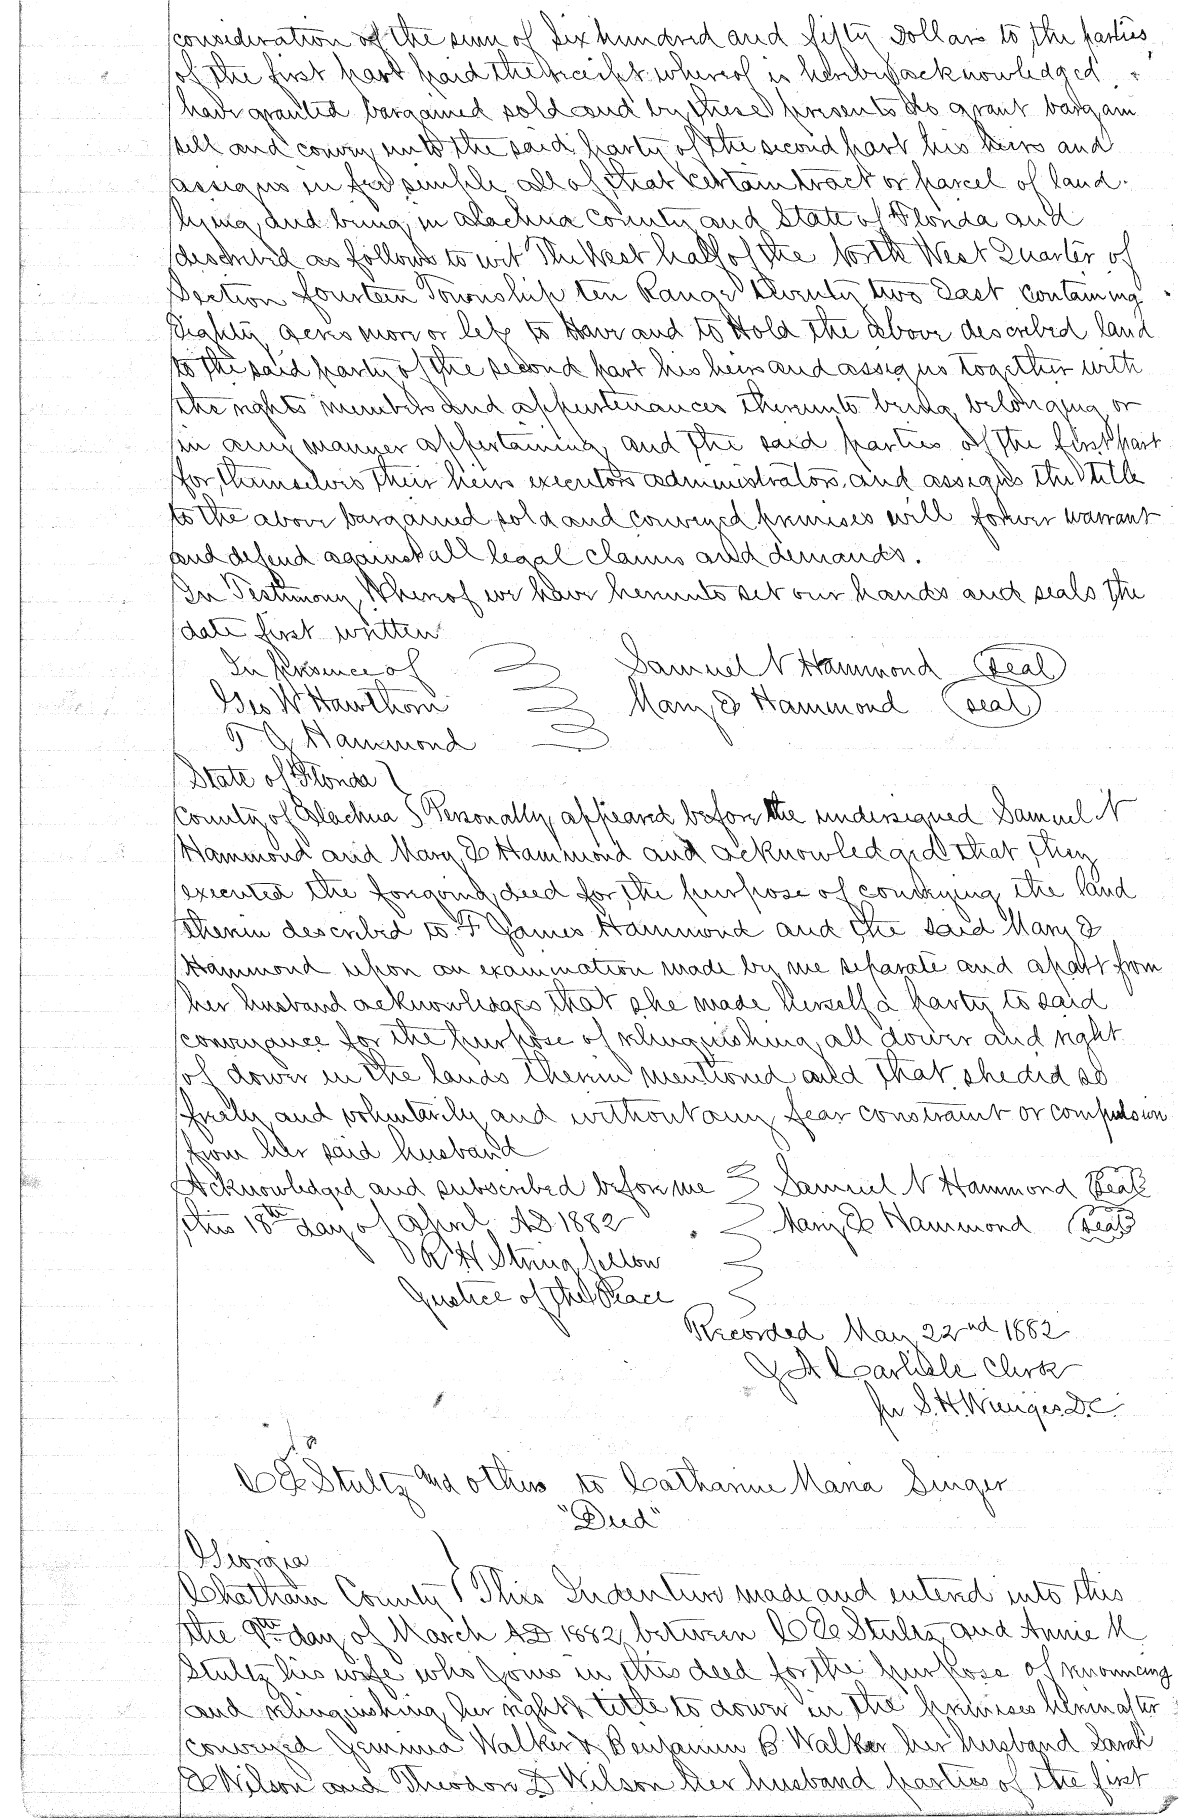 consideration of the sum of Six hundred and fifty Dollars to the parties
of the first part paid the receipt whereof is hereby acknowledged
have granted bargained sold and by these presents do grant bargain
sell and convey unto the said party of the second part his heirs and
assigns in fee simple all of that certain tract or parcel of land
lying and being in Alachua County and State of Florida and
described as follows to wit The West half of the North West Quarter of
Section fourteen Township ten Range Twenty two East containing
Eighty acres more or less to Have and to Hold the above described land
to the said party of the second part his heirs and assigns together with
the rights members and appurtenances thereunto being belonging or
in any manner appertaining and the said parties of the first part
for themselves their heirs executors administrators and assigns the title
to the above bargained sold and conveyed premises will forever warrant
and defend against all legal claims and demands.
In Testimony Whereof we have hereunto set our hands and seals the
date first written
In Presence of Samuel N Hammond (seal)
Geo W Hawthorn Mary E Hammond (seal)
T J Hammond
State of Florida }
County of Alachua } Personally appeared before the undersigned Samuel N
Hammond and Mary E Hammond and acknowledged that they
executed the foregoing deed for the purpose of conveying the land
therein described to F James Hammond and the said Mary E
Hammond upon an examination made by me separate and apart from
her husband acknowledges that she made herself a party to said
conveyance for the purpose of relinquishing all dower and right
of dower in the lands therein mentioned and that she did so
freely and voluntarily and without any fear constraint or compulsion
from her said husband
Acknowledged and subscribed before me Samuel N Hammond (Seal)
this 18th day of April AD 1882 Mary E Hammond (seal)
R H Stringfellow
Justice of the Peace
Recorded May 22nd 1882
J A Carlisle Clerk
per S. H. Wienges D.C.
C E Stultz and others to Catharine Maria Singer
"Deed"
Georgia }
Chatham County } This Indenture made and entered into this
the 9th day of March AD 1882 between C E Stultz and Annie M
Stultz his wife who joins in this deed for the purpose of renouncing
and relinquishing her right & title to dower in the premises hereinafter
conveyed Jemima Walker & Benjamin B. Walker her husband Sarah
E Wilson and Theodore D Wilson her husband parties of the first